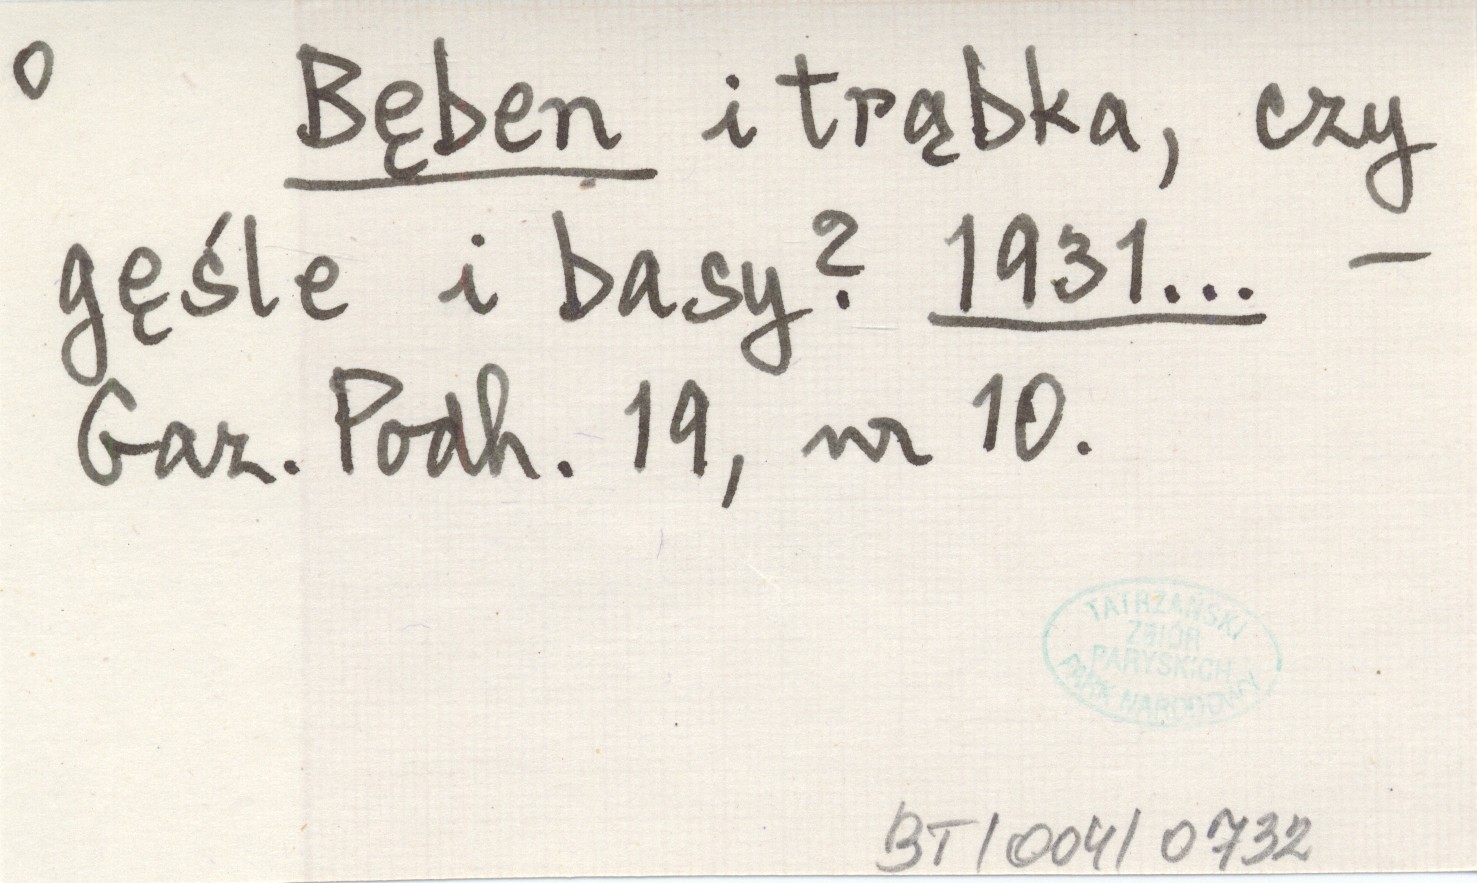 o Bęben i trąbka, czy
gęśle i basy? 1931... –
Gaz. Podh. 19, nr 10.
TATRZAŃSKI
ZBIÓR
PARYSKICH
PARK NARODOWY
BT/004/0732